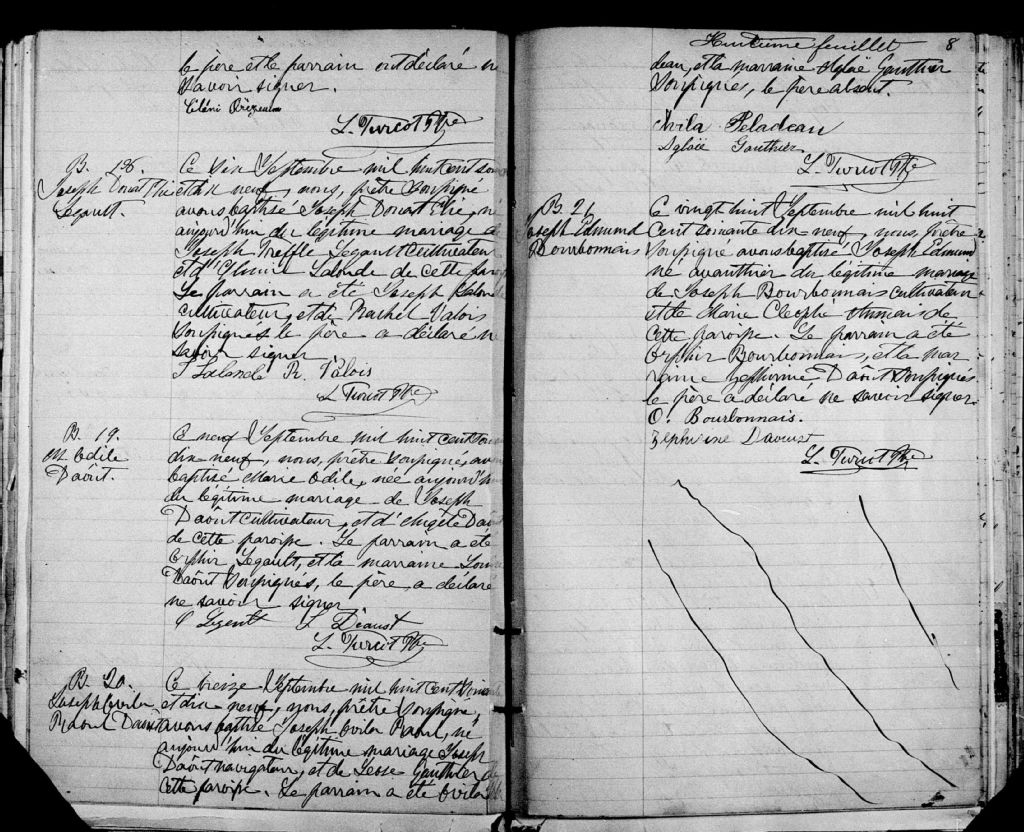 le père et le parrain ont déclaré ne
savoir signer.
L. Turcot Ptre
B. 18.
Joseph Donat Elie
Legault.
Ce six Septembre mil huit cent soi
et dix neuf, nous, prêtre soussigné
avons baptisé Joseph Donat Elie, né
aujourd'hui du légitime mariage de
Joseph Treffle Legault cultivateur
et d' Lalonde de cette paroi
Le parrain a été Joseph Lalonde
cultivateur, et de Rachel Valois
soussignés le père a déclaré ne
savoir signer
J Lalonde R. Valois
L Turcot Ptre
B. 19.
M. Odile
Daôut.
Ce neuf Septembre mil huit cent soi
dix neuf, nous, prêtre soussigné, avons
baptisé Marie Odile, née aujourd'hui
du légitime mariage de Joseph
Daôut cultivateur, et d' Daôut
de cette paroisse. Le parrain a été
Orphir Legault, et la marraine
Daôut soussignés, le père a déclaré
ne savoir signer
L. Turcot Ptre
B. 20.
Joseph Ovila
Raoul Daout
Ce treize Septembre mil huit cent soixante
et dix neuf, nous, prêtre soussigné,
avons baptisé Joseph Ovila Raoul, né
aujourd'hui du légitime mariage Joseph
Daôut navigateur, et de Gauthier de
cette paroisse. Le parrain a été Ovila
Huitième feuillet 8
deau, et la marraine Aglaë Gauthier
soussignés, le père absent.
Avila Peladeau
Aglaë Gauthier
L. Turcot Ptre
B. 21
Joseph Edmund
Bourbonnais
Ce vingt huit Septembre mil huit
cent soixante dix neuf, nous, prêtre
soussigné avons baptisé Joseph Edmund
né avant hier du légitime mariage
de Joseph Bourbonnais cultivateur
et de Marie Cleophe de
cette paroisse. Le parrain a été
Orphir Bourbonnais, et la mar
raine Zephirine Daôut soussignés
le père a déclaré ne savoir signer.
O. Bourbonnais.
Zephirine Daoust
L. Turcot Ptre